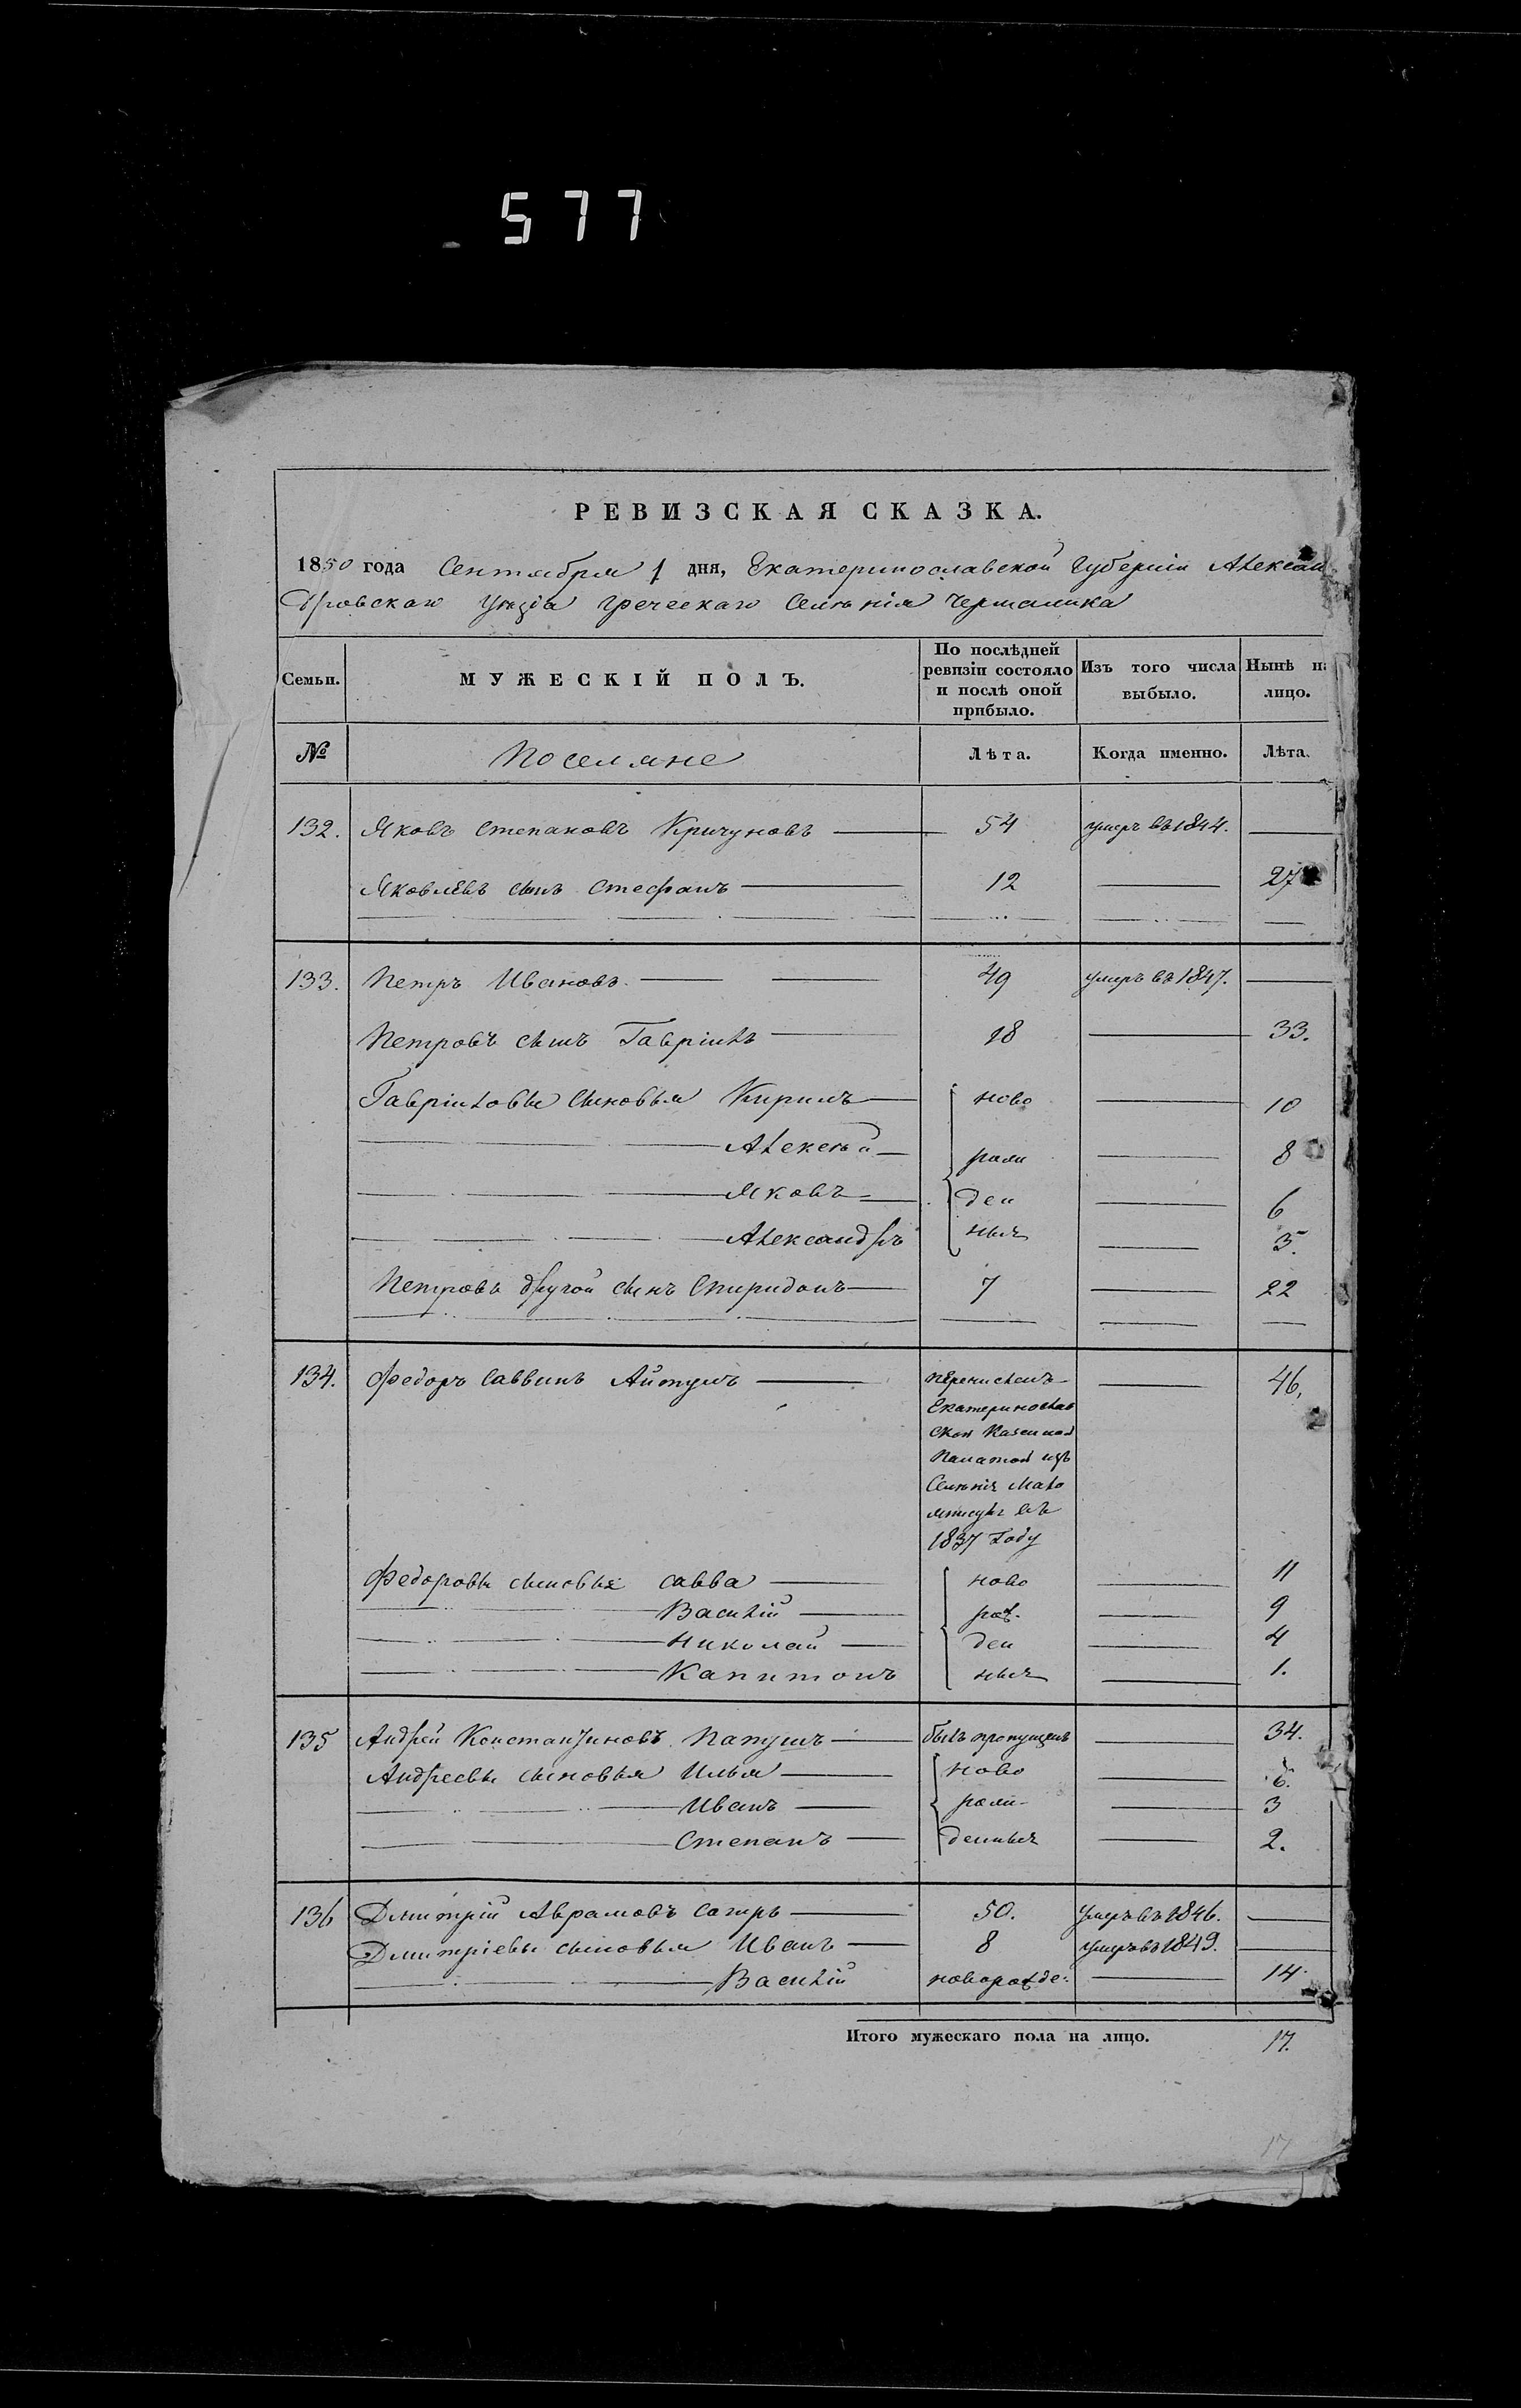 577
РЕВИЗСКАЯ СКАЗКА.
1850 года Сентября 1 дня, Екатеринославской Губерніи Алексан
дровскаго Уѣзда Греческаго Селѣнія Чермалика
Семьи. МУЖЕСКІЙ ПОЛЪ. По послѣдней ревизіи состояло и послѣ оной прибыло. Изъ того числа выбыло. Нынѣ на лицо.
№ Поселяне Лѣта. Когда именно. Лѣта.
132. Яковъ Степановъ Кричуновъ 54 умеръ въ 1844.
Яковлевъ сынъ Стефанъ 12 27
133. Петръ Ивановъ 49 умеръ въ 1847.
Петровъ сынъ Гавріилъ 18 33.
Гавріиловы сыновья Кирилъ ново 10
Алексѣй рож 8
Яковъ ден 6
Александръ ныхъ 5.
Петровъ другой сынъ Спиридонъ 7 22
134. Федоръ Саввинъ Айтулъ перечисленъ 46.
Екатеринослав
ской Казенной
Палатой изъ
Селѣнія Мало
въ
1837 Году
Федоровы сыновья Савва ново 11
Василій рож. 9
Николай ден 4
Капитонъ ныхъ 1.
135 Андрей Константиновъ Папушъ былъ пропущенъ 34.
Андреевы сыновья Илья ново 6.
Иванъ рож 3
Степанъ денныхъ 2.
136 Дмитрій Аврамовъ Сахиръ 50. умеръ въ 1846.
Дмитріевы сыновья Иванъ 8 умеръ въ 1849.
Василій новорожде: 14.
Итого мужескаго пола на лицо. 17.
17